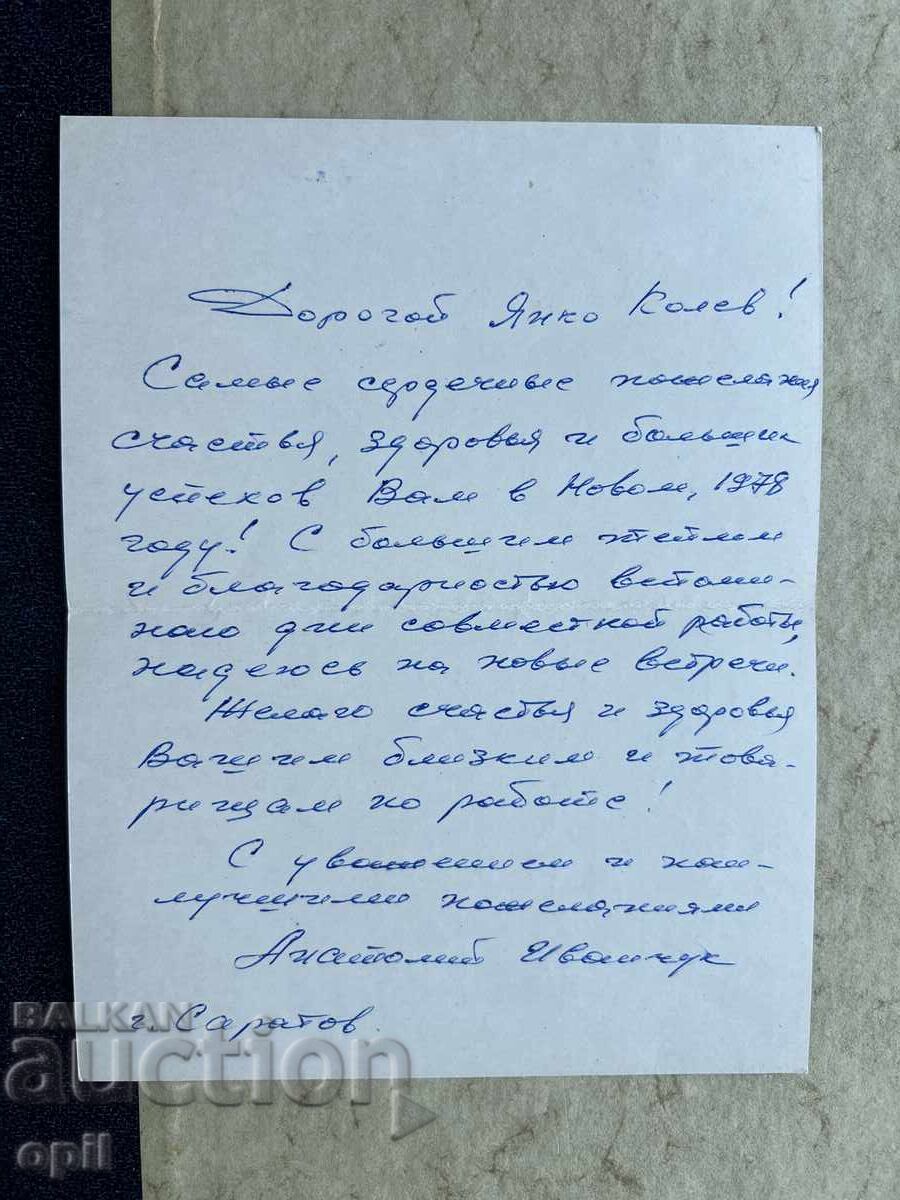 Дорогой Янко Колев!
Самые сердечные пожелания
счастья, здоровья и больших
успехов Вам в Новом, 1978
году! С большим теплом
и благодарностью вспоми-
наю дни совместной работы,
надеюсь на новые встречи.
Желаю счастья и здоровья
Вашим близким и това-
рищам по работе!
С уважением и наи-
лучшими пожеланиями
Анатолий Иванчук
г. Саратов.
BALKAN
auction
opil